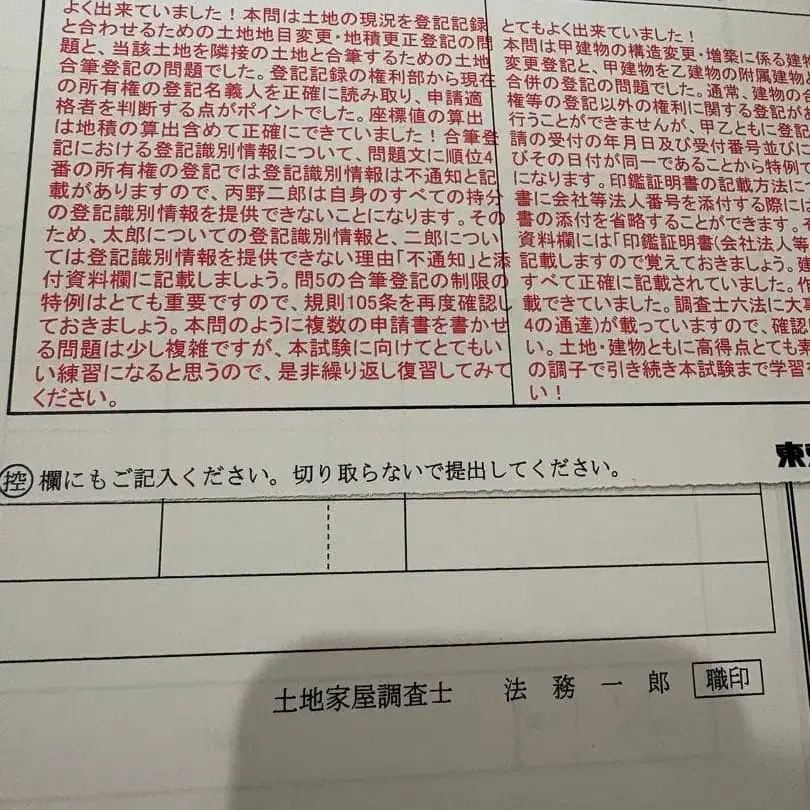 よく出来ていました！本問は土地の現況を登記記録
と合わせるための土地地目変更・地積更正登記の問
題と、当該土地を隣接の土地と合筆するための土地
合筆登記の問題でした。登記記録の権利部から現在
の所有権の登記名義人を正確に読み取り、申請適
格者を判断する点がポイントでした。座標値の算出
は地積の算出含めて正確にできていました！合筆登
記における登記識別情報について、問題文に順位4
番の所有権の登記では登記識別情報は不通知と記
載がありますので、丙野二郎は自身のすべての持分
の登記識別情報を提供できないことになります。その
ため、太郎についての登記識別情報と、二郎につい
ては登記識別情報を提供できない理由「不通知」と添
付資料欄に記載しましょう。問5の合筆登記の制限の
特例はとても重要ですので、規則105条を再度確認し
ておきましょう。本問のように複数の申請書を書かせ
る問題は少し複雑ですが、本試験に向けてとてもい
い練習になると思うので、是非繰り返し復習してみて
ください。
とてもよく出来ていました！
本問は甲建物の構造変更・増築に係る建物
変更登記と、甲建物を乙建物の附属建物と
合併の登記の問題でした。通常、建物の合
権等の登記以外の権利に関する登記があ
行うことができませんが、甲乙ともに登記
請の受付の年月日及び受付番号並びに
びその日付が同一であることから特例で
になります。印鑑証明書の記載方法に
書に会社等法人番号を添付する際には
書の添付を省略することができます。そ
資料欄には「印鑑証明書(会社法人等
記載しますので覚えておきましょう。建
すべて正確に記載されていました。作
載できていました。調査士六法に大
4の通達)が載っていますので、確認
い。土地・建物ともに高得点とても素
の調子で引き続き本試験まで学習を
い！
控 欄にもご記入ください。切り取らないで提出してください。
東
土地家屋調査士 法 務 一 郎 職印